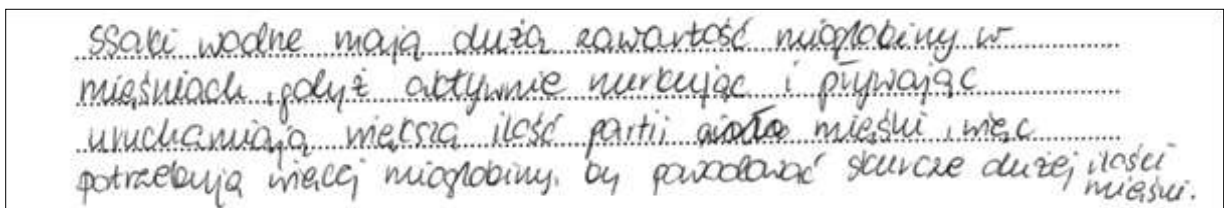 Ssaki wodne mają dużą zawartość mioglobiny w
mięśniach, gdyż aktywnie nurkując i pływając
uruchamiają większą ilość partii mięśni, więc
potrzebują więcej mioglobiny, by powodować skurcze dużej ilości
mięśni.